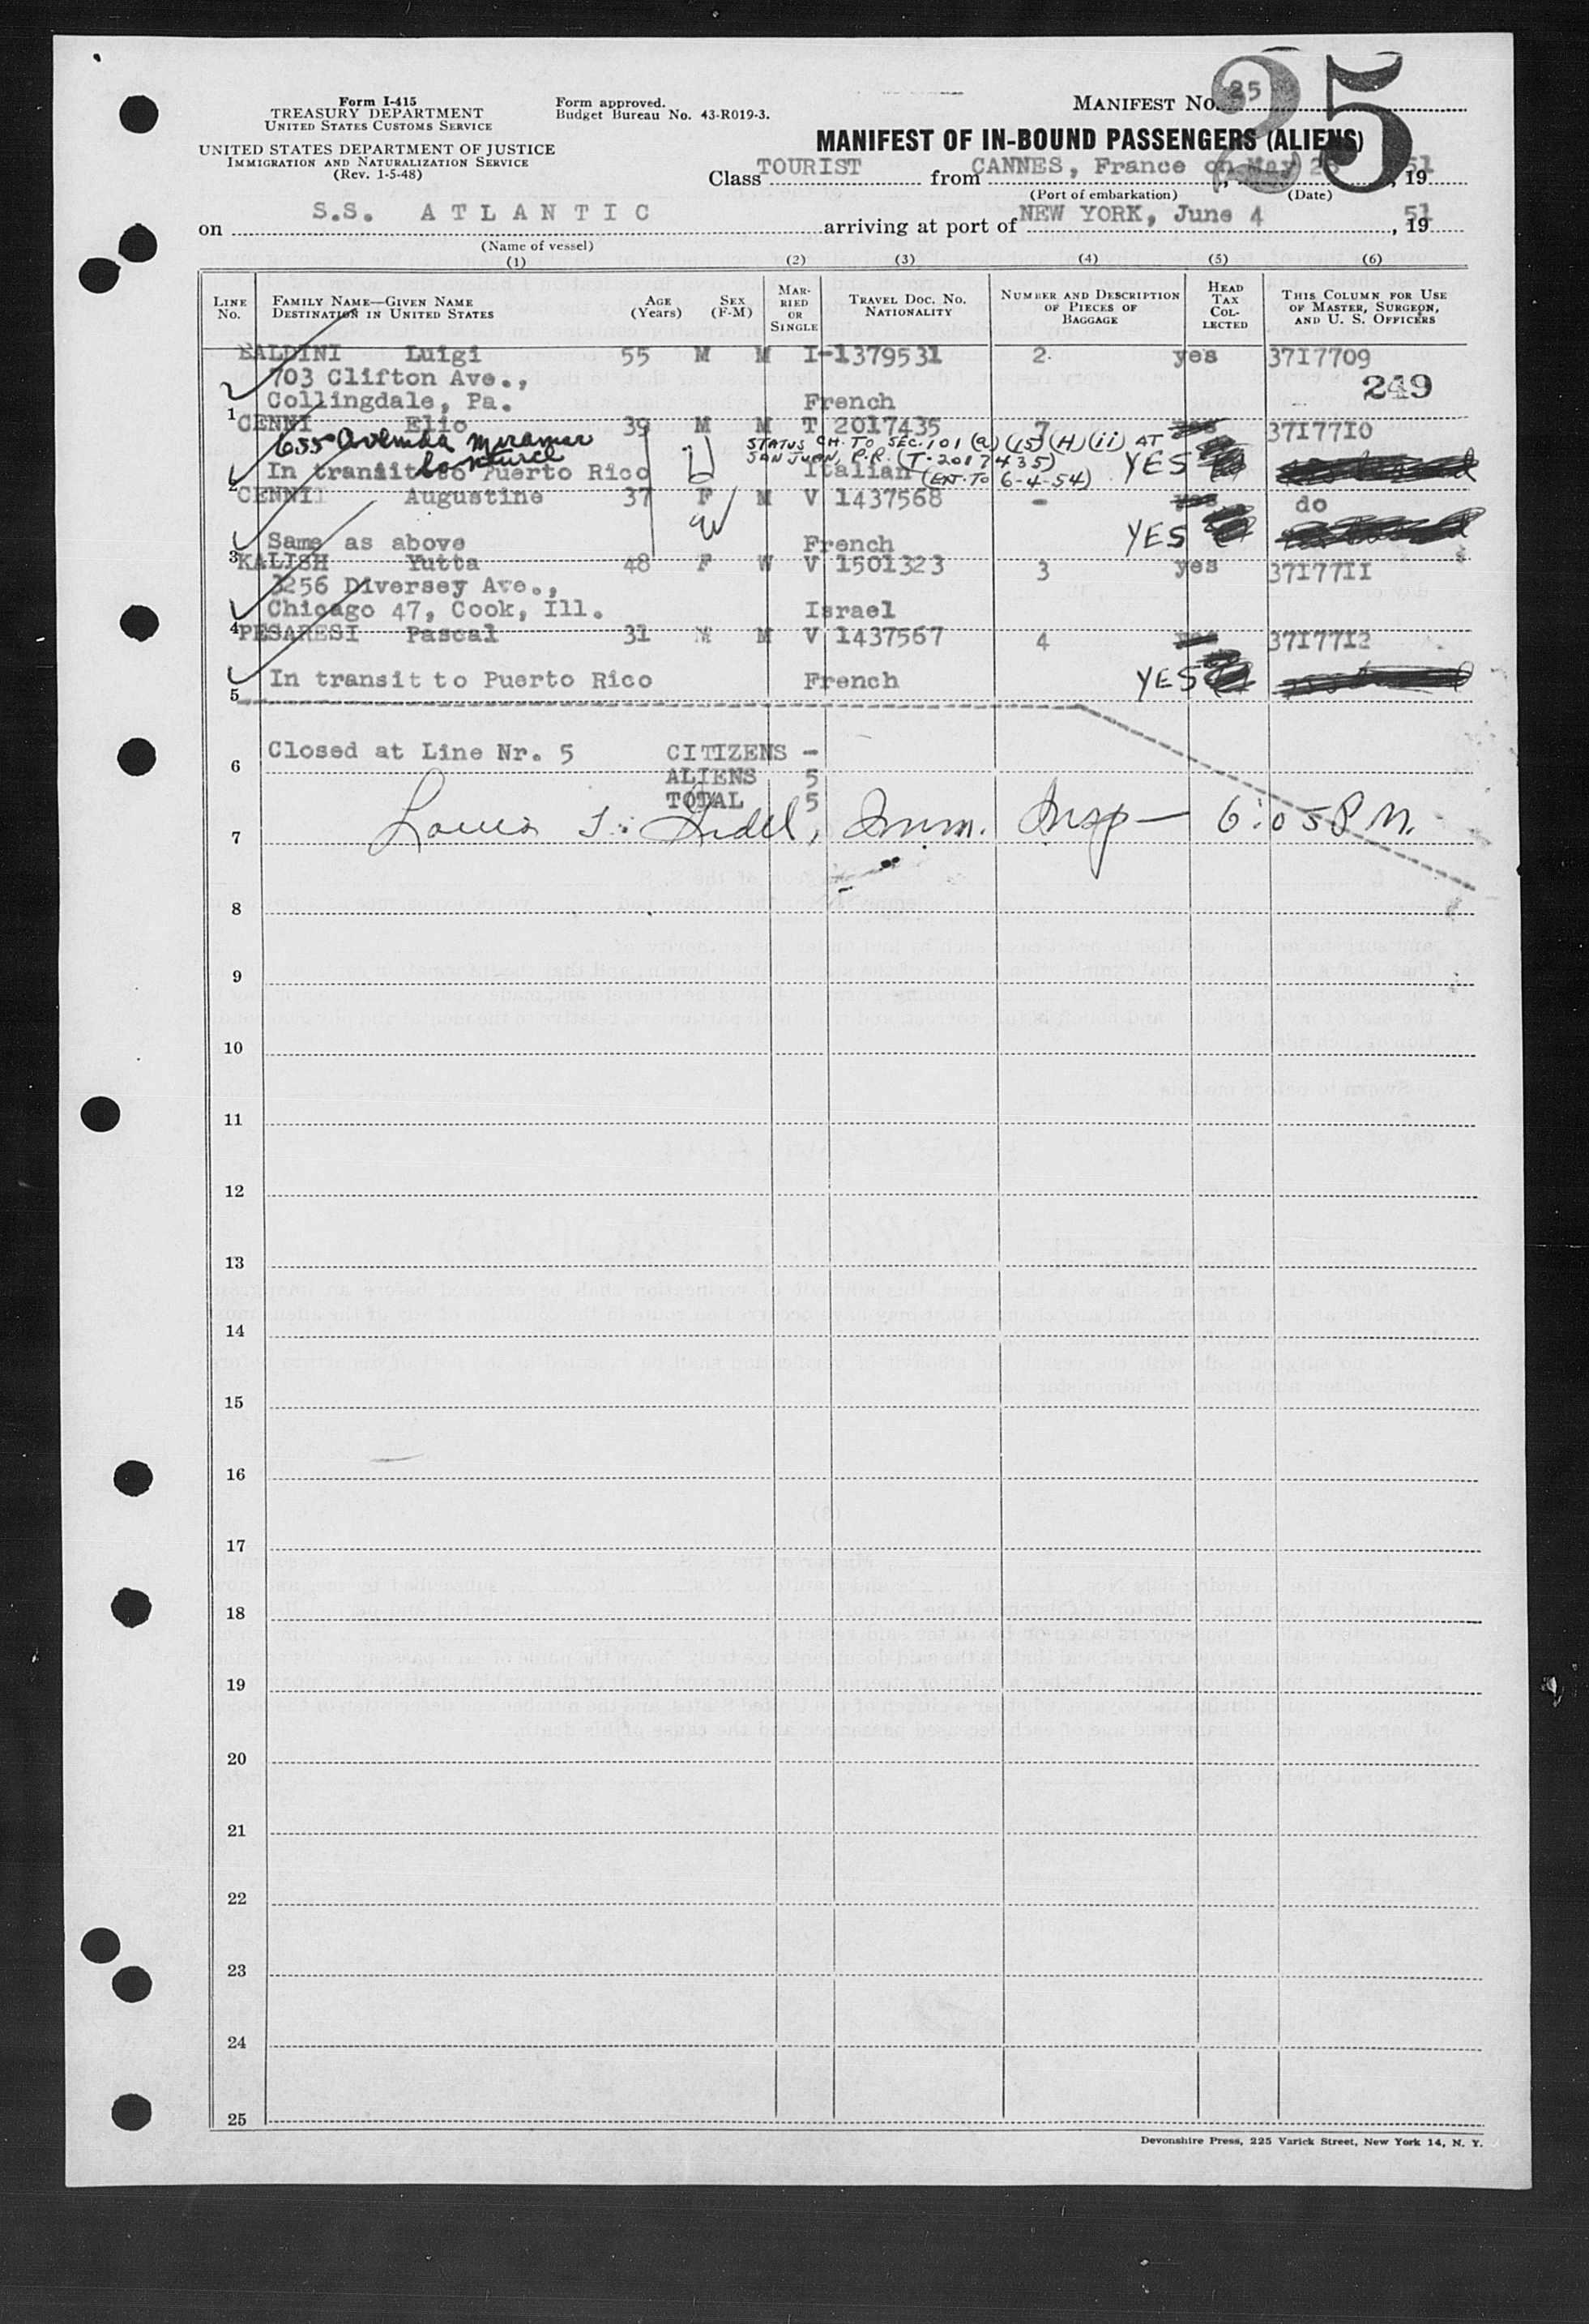 Form I-415
TREASURY DEPARTMENT
UNITED STATES CUSTOMS SERVICE
UNITED STATES DEPARTMENT OF JUSTICE
IMMIGRATION AND NATURALIZATION SERVICE
(Rev. 1-5-48)
Form approved.
Budget Bureau No. 43-R019-3.
MANIFEST No. 25
25
MANIFEST OF IN-BOUND PASSENGERS (ALIENS)
Class TOURIST from CANNES, France on May 26, 1951
(Port of embarkation) (Date)
on S.S. ATLANTIC arriving at port of NEW YORK, June 4, 1951
(Name of vessel)
(1) (2) (3) (4) (5) (6)
LINE No. FAMILY NAME—GIVEN NAME DESTINATION IN UNITED STATES AGE (Years) SEX (F-M) MARRIED OR SINGLE TRAVEL DOC. NO. NATIONALITY NUMBER AND DESCRIPTION OF PIECES OF BAGGAGE HEAD TAX COLLECTED THIS COLUMN FOR USE OF MASTER, SURGEON, AND U. S. OFFICERS
BALDINI Luigi 55 M M I-1379531 2 yes 3717709
703 Clifton Ave., 249
1 Collingdale, Pa. French
CENNI Elio 39 M M T 2017435 7 yes 3717710
655 Avenida Miramar STATUS CH. TO SEC. 101 (a) (15) (H) (ii) AT
Santurce SAN JUAN, P.R. (T-2017435) YES
2 In transit to Puerto Rico Italian (EXT. TO 6-4-54)
CENNI Augustine 37 F M V 1437568 - yes do
YES
3 Same as above French
KALISH Yutta 48 F W V 1501323 3 yes 3717711
3256 Diversey Ave.,
4 Chicago 47, Cook, Ill. Israel
PESARESI Pascal 31 M M V 1437567 4 yes 3717712
5 In transit to Puerto Rico French YES
6 Closed at Line Nr. 5 CITIZENS -
ALIENS 5
TOTAL 5
7 Louis J. Fidel, Imm. Insp — 6:05 P M.
8
9
10
11
12
13
14
15
16
17
18
19
20
21
22
23
24
25
Devonshire Press, 225 Varick Street, New York 14, N. Y.